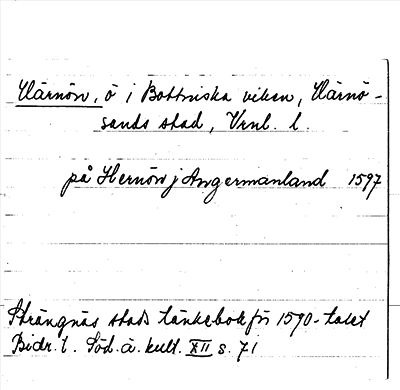 Härnön, ö i Bottniska viken, Härnö-
sands stad, Vrnl. l
på Hernön j Angermanland 1597
Strängnäs stads tänkebok för 1590-talet
Bidr. t. Söd. ä. kult. XII s. 71